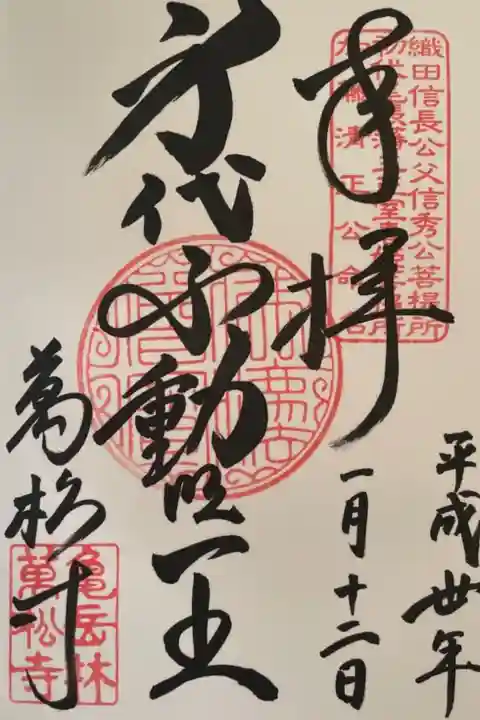 織田信長公父信秀公菩提所
奉拝
平成丗年
一月十二日
身代不動明王
萬松寺
亀岳林
萬松寺